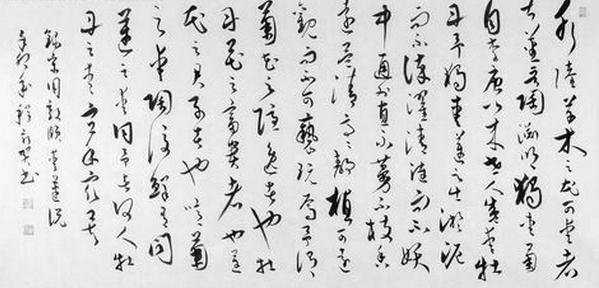 水陸草木之花可愛者
甚蕃晉陶淵明獨愛菊
自李唐以來世人甚愛牡
丹予獨愛蓮之出淤泥
而不染濯清漣而不妖
中通外直不蔓不枝香
遠益清亭亭靜植可遠
觀而不可褻玩焉予謂
菊花之隱逸者也牡
丹花之富貴者也蓮
花之君子者也噫菊
之愛陶後鮮有聞
蓮之愛同予者何人牡
丹之愛宜乎眾矣
錄宋周敦頤愛蓮說
書